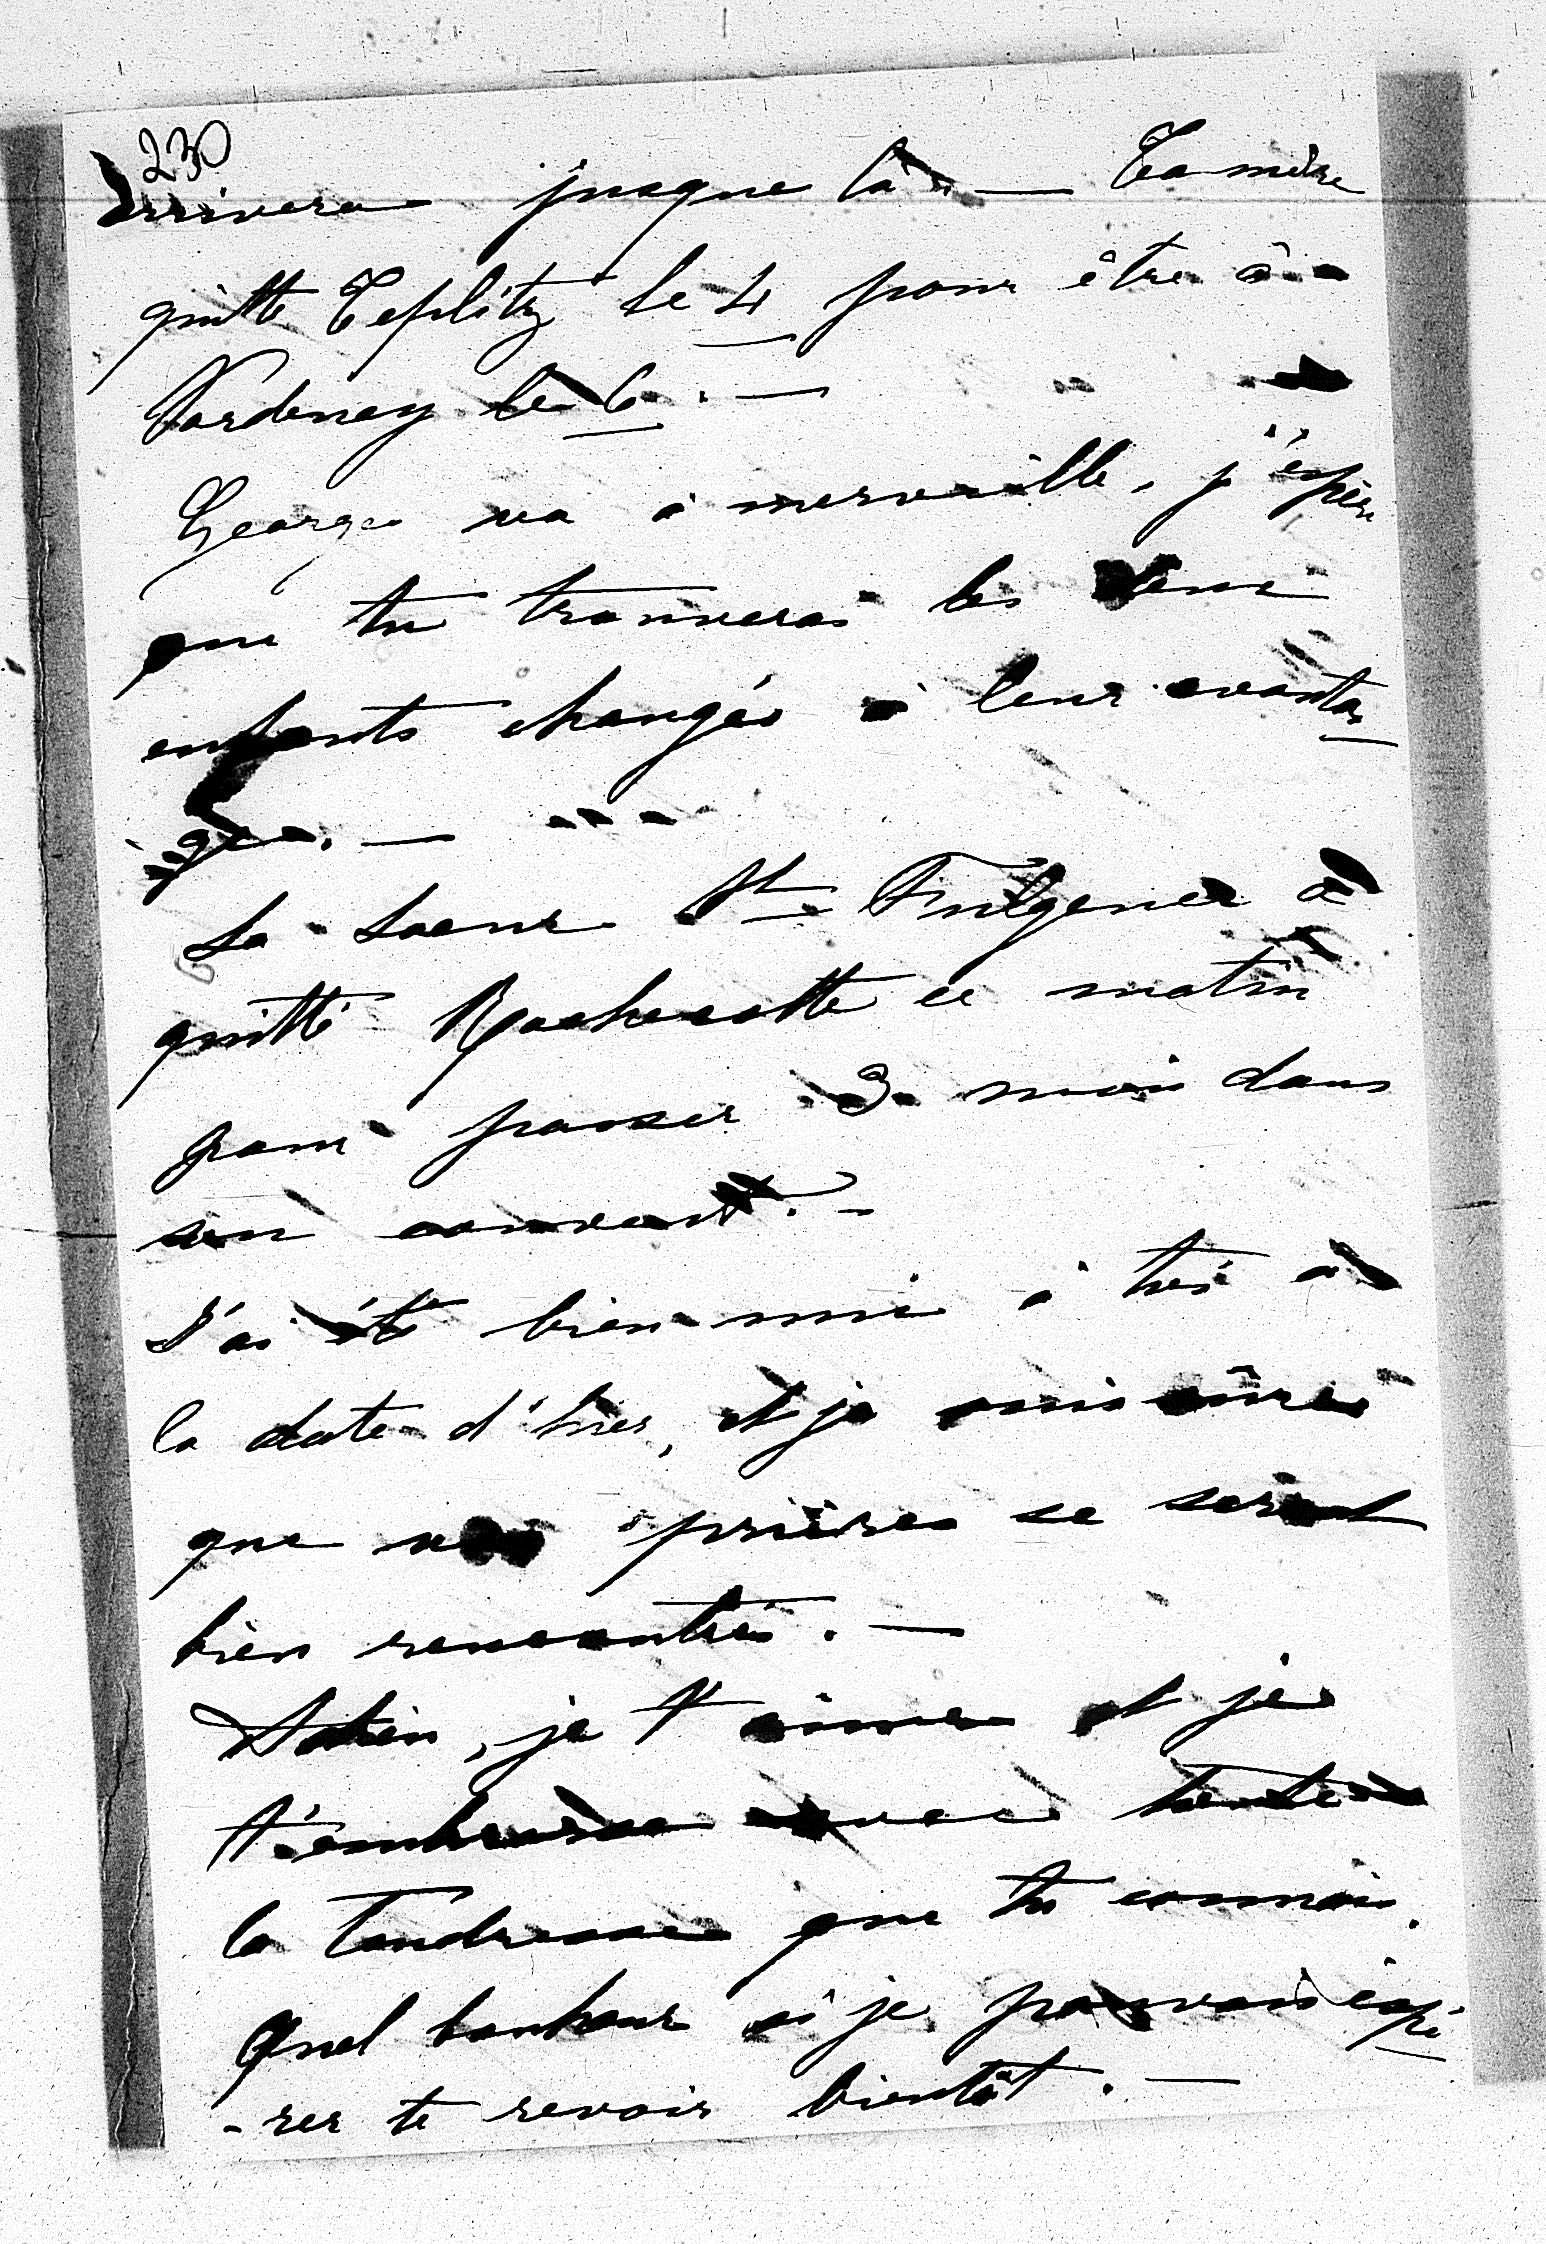 230
arrivera jusque là. — Ta mère
quitte Teplitz le 4 pour être à
Norderney le 6. —
Georges va à merveille, j'espère
que tu trouveras les deux
enfants changés à leur avanta
ge. —
La soeur St Fulgence a
quitté Rochecotte ce matin
pour passer 3 mois dans
son couvent. —
J'ai été bien unie à toi à
la date d'hier, et je suis sûre
que nos prières se seront
bien rencontrées. —
Adieu, je t'aime et je
t'embrasse avec toute
la tendresse que tu connais.
Quel bonheur si je pouvais espé
-rer te revoir bientôt. —